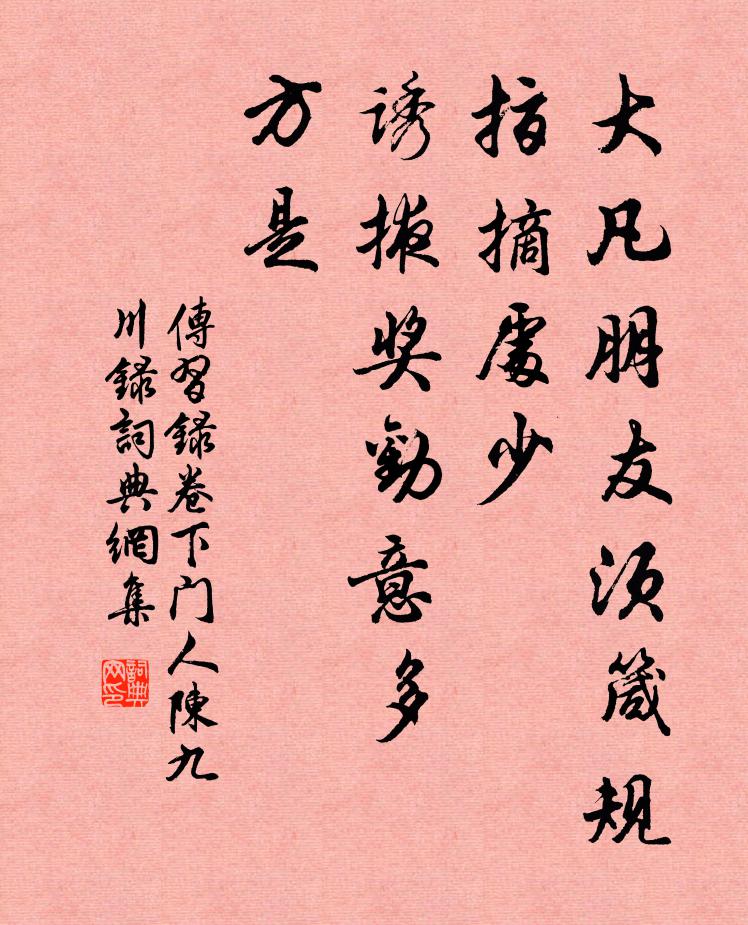 大凡朋友须箴規
指摘處少
诱掖奖勸意多
方是
傳習録卷下门人陳九
川録詞典網集
詞典
网印